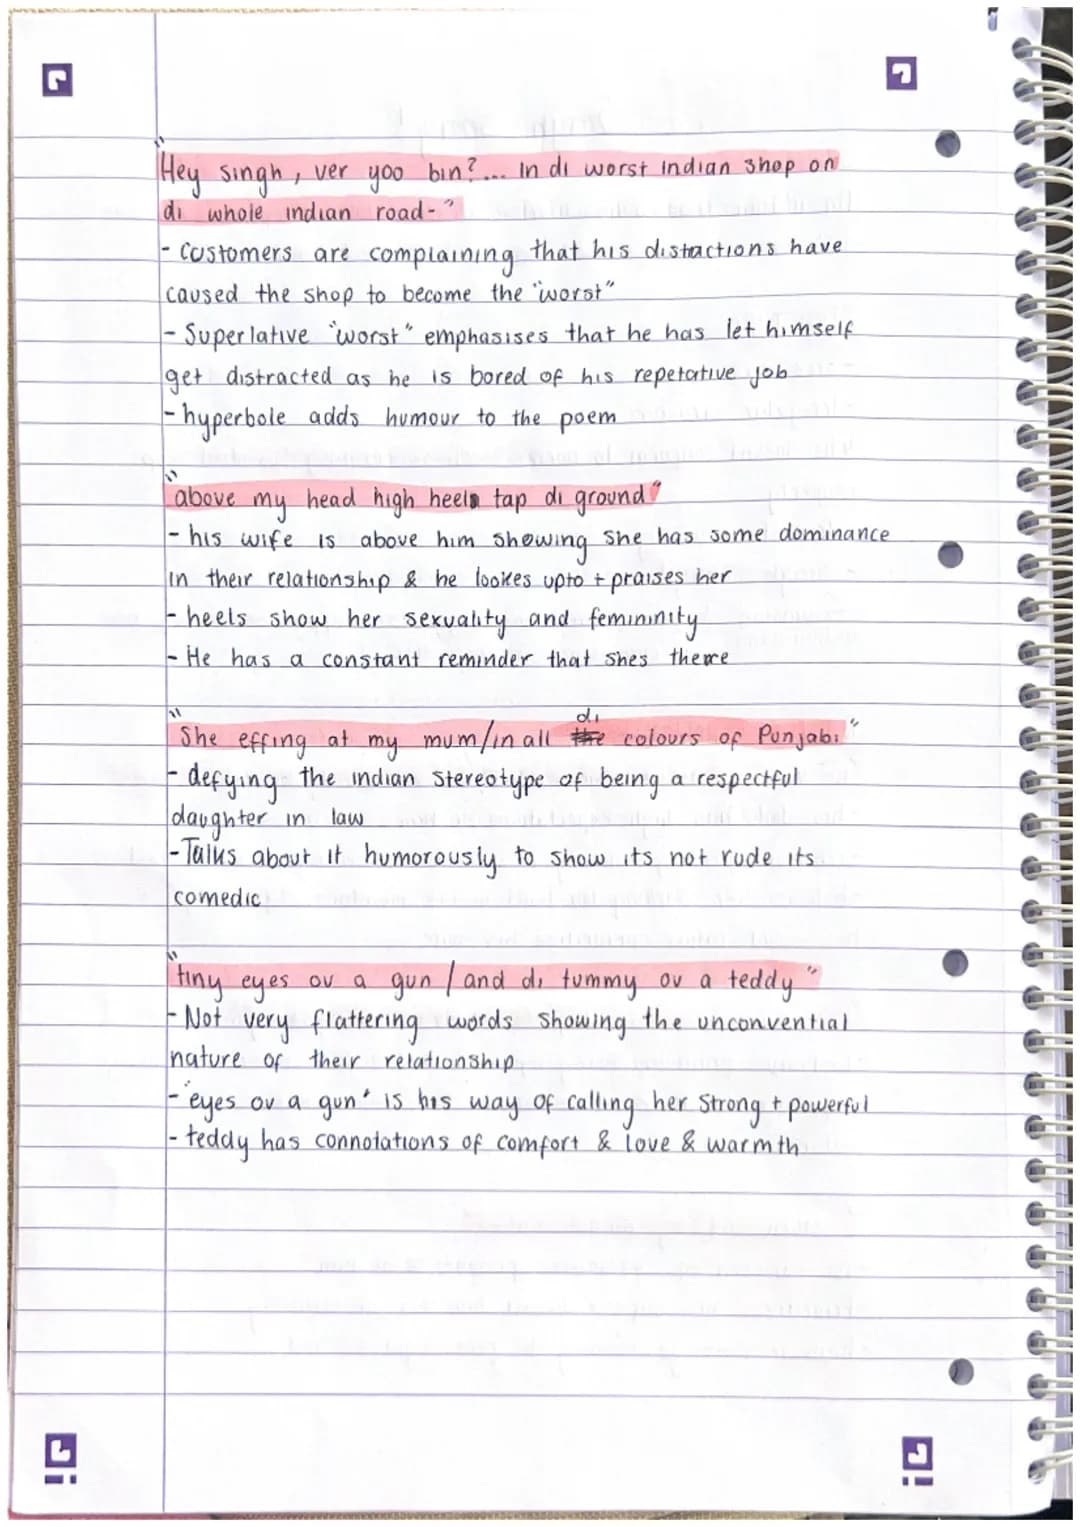 "Hey Singh, ver yoo bin?... In di worst indian shop on
di whole indian road-"
- Customers are complaining that his distractions have
caused the shop to become the "worst"
- Superlative "worst" emphasises that he has let himself
get distracted as he is bored of his repetative job
- hyperbole adds humour to the poem
"above my head high heels tap di ground"
- his wife is above him showing she has some dominance
in their relationship & he lookes upto + praises her
- heels show her sexuality and femininity
- He has a constant reminder that shes there
di
"She effing at my mum/in all the colours of Punjabi"
- defying the indian stereotype of being a respectful
daughter in law
- Talks about it humorously to show its not rude its
comedic
"tiny eyes ov a gun / and di tummy ov a teddy"
- Not very flattering words showing the unconvential
nature of their relationship
- "eyes ov a gun" is his way of calling her strong + powerful
- teddy has connotations of comfort & love & warmth